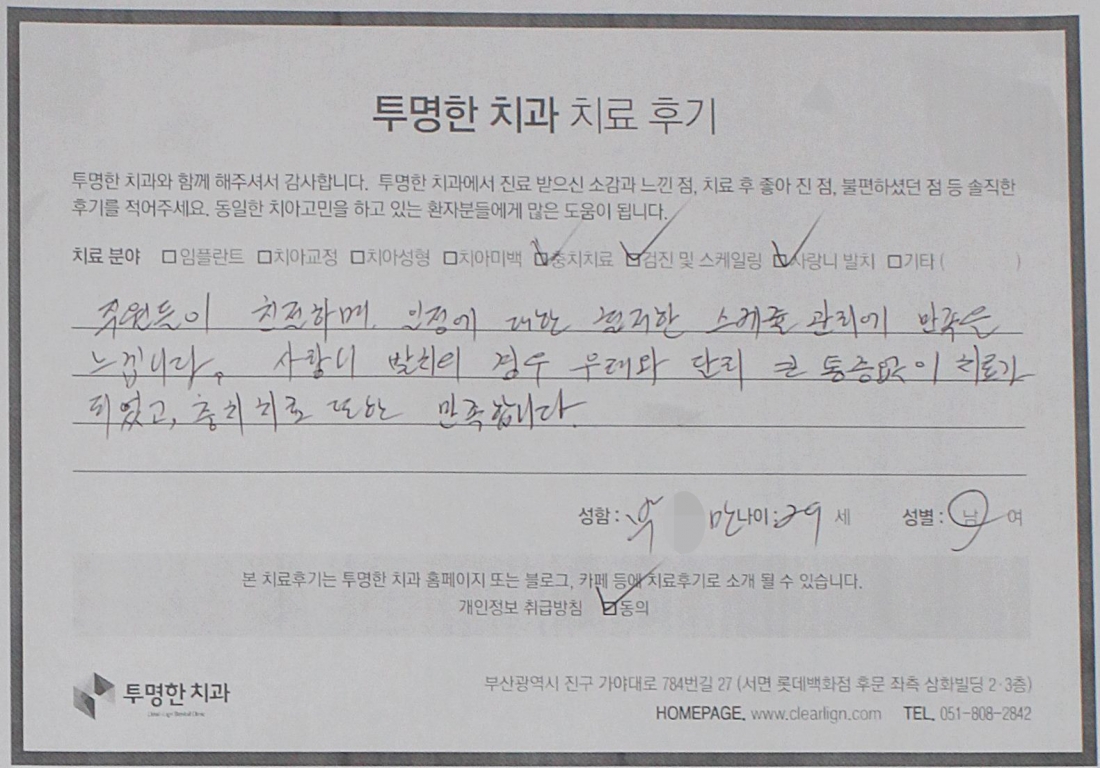 투명한 치과 치료 후기
투명한 치과와 함께 해주셔서 감사합니다. 투명한 치과에서 진료 받으신 소감과 느낀 점, 치료 후 좋아 진 점, 불편하셨던 점 등 솔직한
후기를 적어주세요. 동일한 치아고민을 하고 있는 환자분들에게 많은 도움이 됩니다.
치료 분야 □임플란트 □치아교정 □치아성형 □치아미백 ☑충치치료 ☑검진 및 스케일링 ☑사랑니 발치 □기타 ( )
직원들이 친절하며, 일정에 대한 철저한 스케줄 관리에 만족을
느낍니다. 사랑니 발치의 경우 우려와 달리 큰 통증없이 치료가
되었고, 충치치료 또한 만족합니다.
성함 : 만나이 : 29 세 성별 : 남 여
본 치료후기는 투명한 치과 홈페이지 또는 블로그, 카페 등에 치료후기로 소개 될 수 있습니다.
개인정보 취급방침 ☑동의
투명한 치과
부산광역시 진구 가야대로 784번길 27 (서면 롯데백화점 후문 좌측 삼화빌딩 2·3층)
HOMEPAGE. www.clearlign.com TEL. 051-808-2842